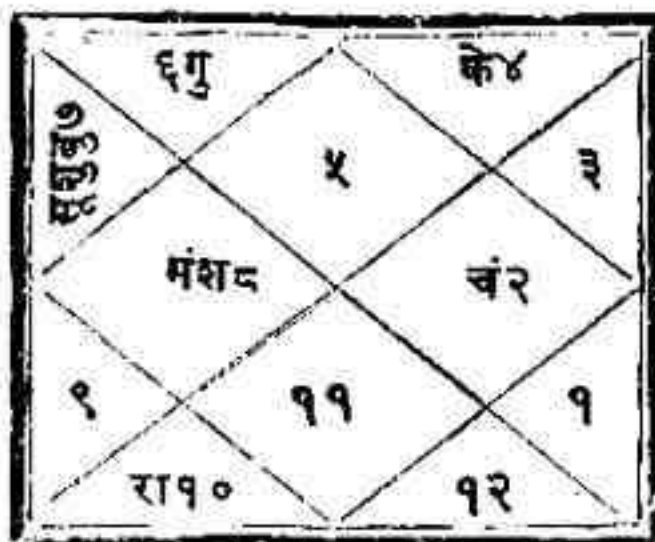 ६गु
के४
सूशुबु७
५
३
मंश८
चं२
९
११
१
रा१०
१२